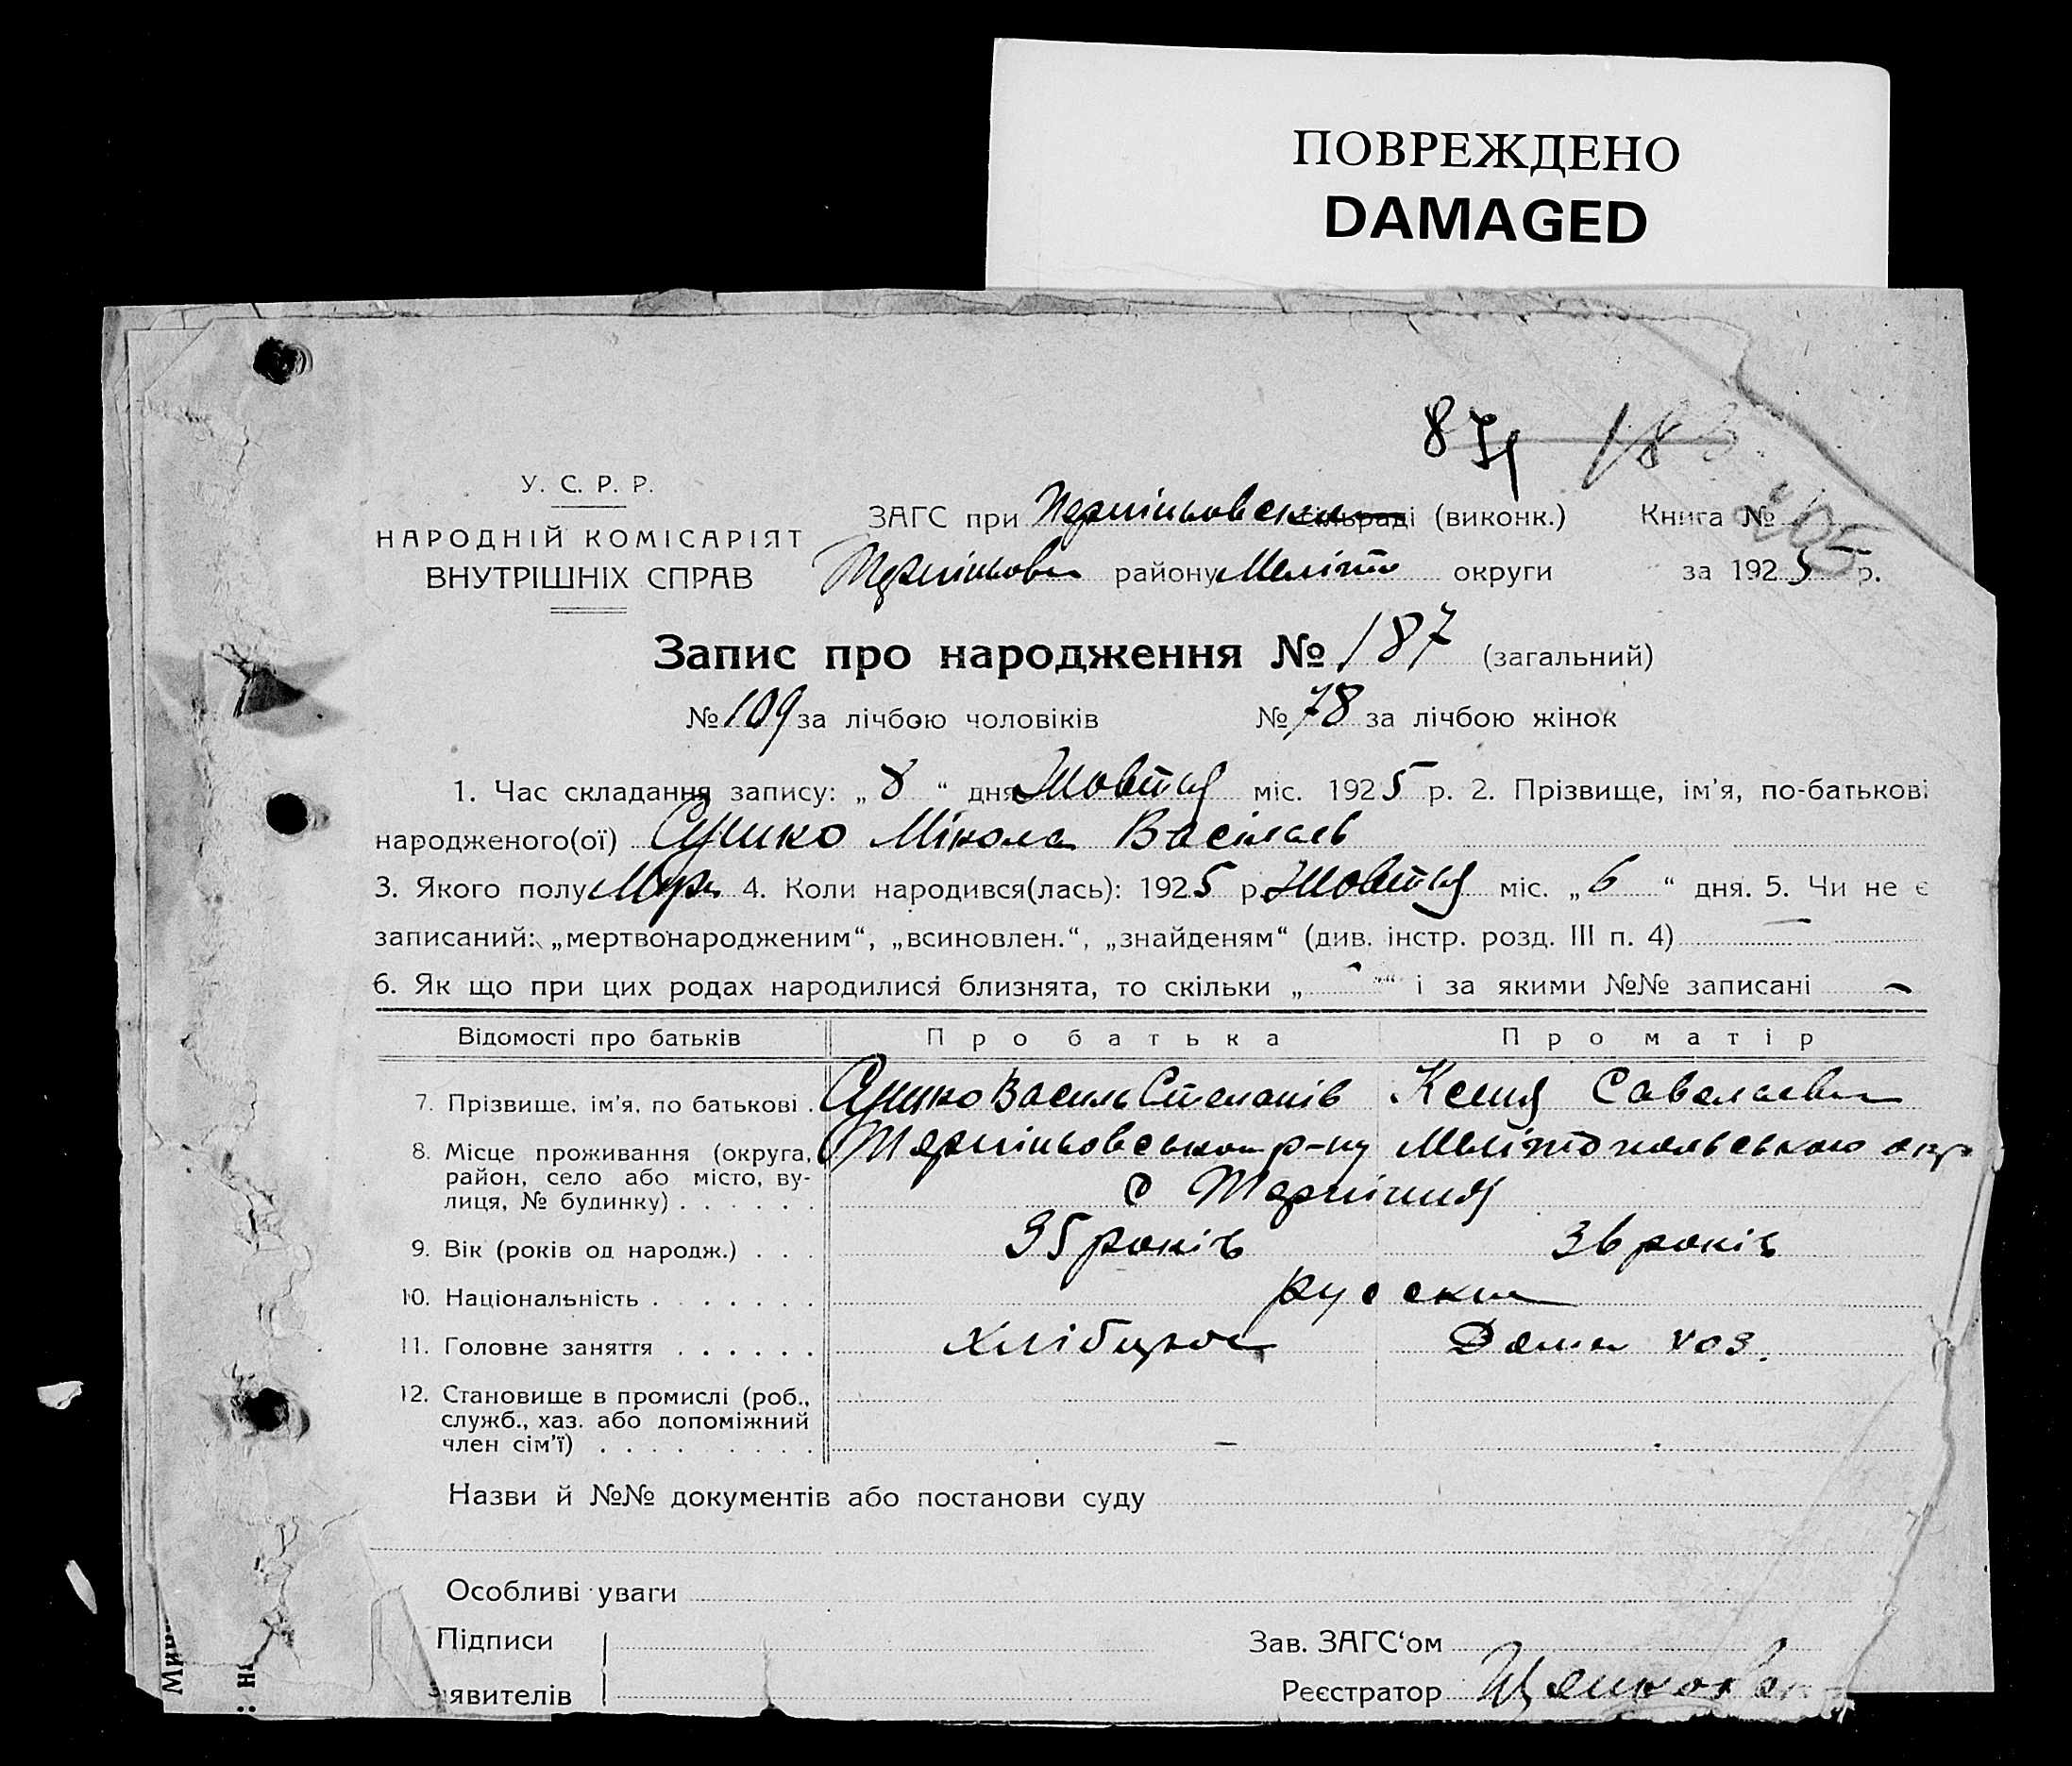 ПОВРЕЖДЕНО
DAMAGED
87 183
У. С. Р. Р.
НАРОДНІЙ КОМІСАРІЯТ
ВНУТРІШНІХ СПРАВ
ЗАГС при сільраді (виконк.) Книга № 405
району Меліто округи за 1925 р.
Запис про народження № 187 (загальний)
№ 109 за лічбою чоловіків № 78 за лічбою жінок
1. Час складання запису: „ 8 “ дня Жовтня міс. 1925 р. 2. Прізвище, ім'я, по-батькові
народженого(ої) Сушко Мікола Васілаєв
3. Якого полу Муж. 4. Коли народився(лась): 1925 р. Жовтня міс. „ 6 “ дня. 5. Чи не є
записаний: „мертвонародженим“, „всиновлен.“, „знайденям“ (див. інстр. розд. III п. 4) —
6. Як що при цих родах народилися близнята, то скільки „ “ і за якими №№ записані —
Відомості про батьків Про батька Про матір
7. Прізвище, ім'я, по батькові . Сушко Василь Степанів Ксенія Савелаевна
8. Місце проживання (округа, р-ну Мелітопольською окр
район, село або місто, ву-
лиця, № будинку) . . . . . . с Терпіння
9. Вік (років од народж.) . . . 35 років 36 років
10. Національність . . . . . . . русские
11. Головне заняття . . . . . . Хлібороб Дома хоз.
12. Становище в промислі (роб.,
служб., хаз. або допоміжний
член сім'ї) . . . . . . . . . —
Назви й №№ документів або постанови суду
Особливі уваги
Підписи Зав. ЗАГС‘ом
явителів Реєстратор